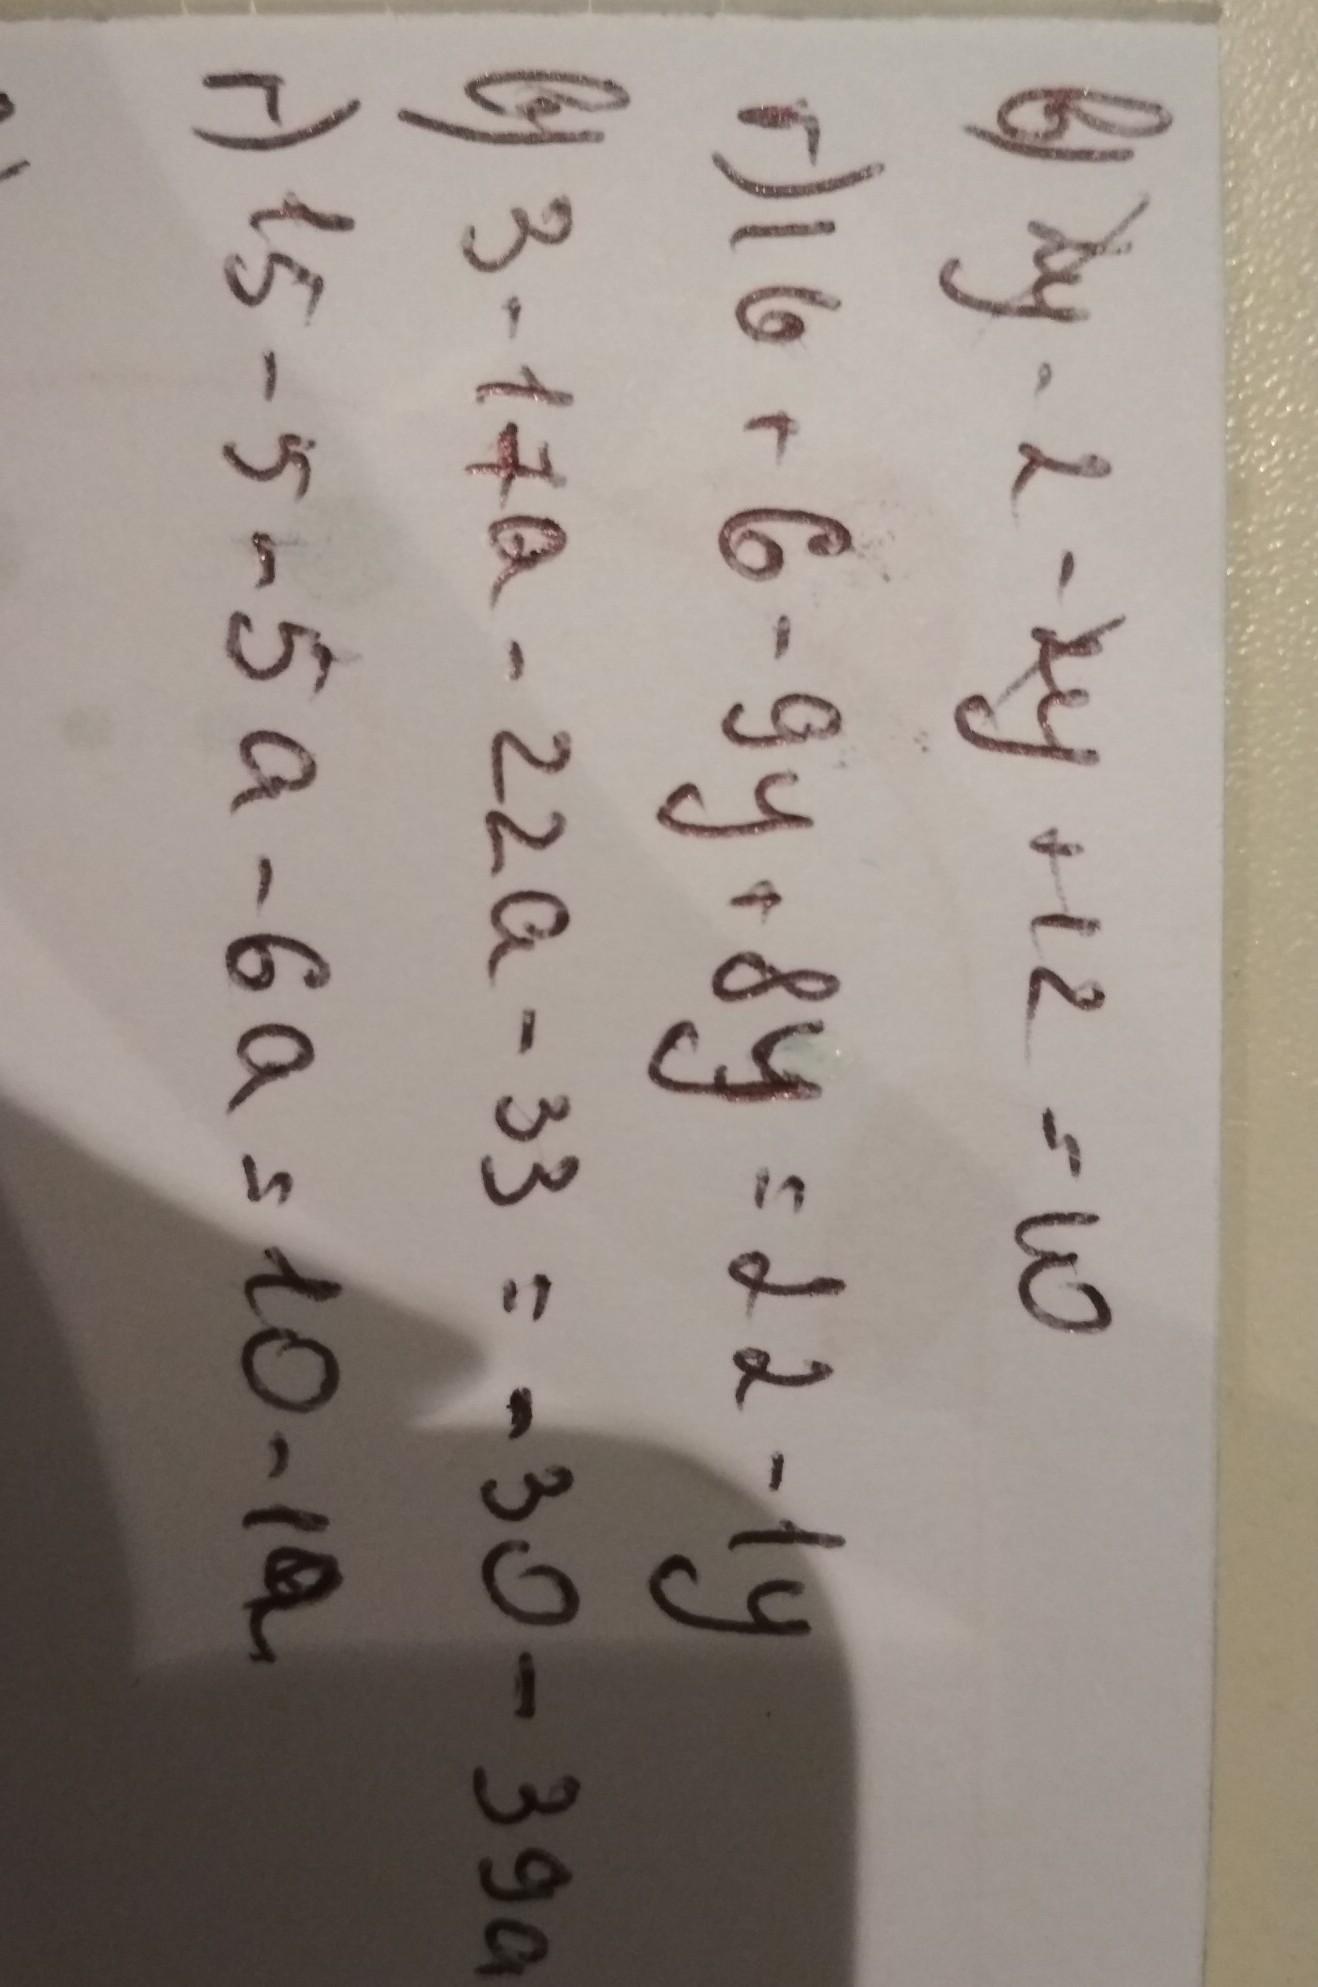 в) xy - 2 - xy + 12 = 10
г) 16 + 6 - 9y + 8y = 22 - 1y
в) 3 - 17a - 22a - 33 = - 30 - 39a
г) 15 - 5 - 5a - 6a = 10 - 1a